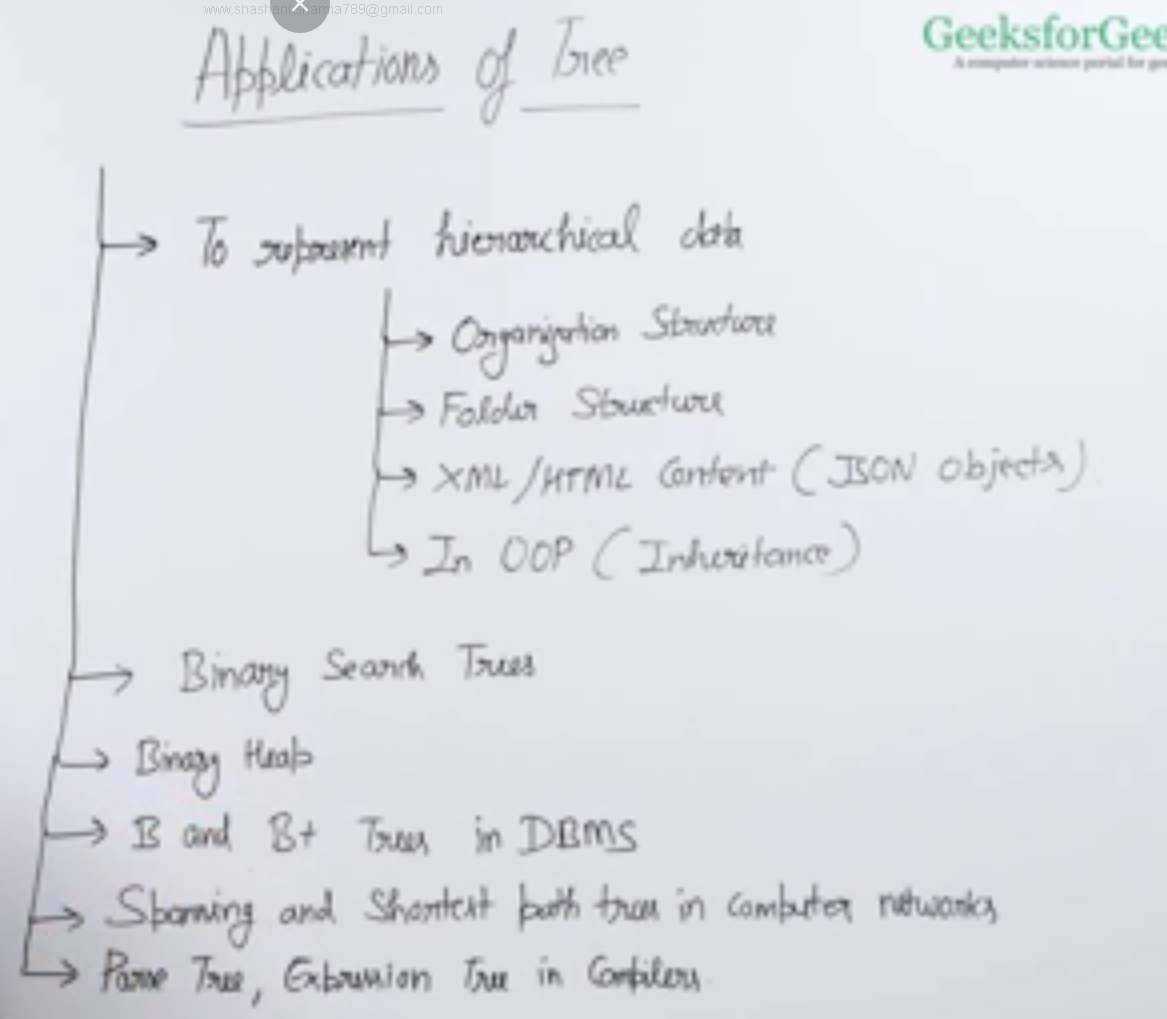 www.shashanksharma789@gmail.com
GeeksforGee
A computer science portal for gee
Applications of Tree
To represent hierarchical data
Organization Structure
Folder Structure
XML/HTML Content (JSON Objects)
In OOP (Inheritance)
Binary Search Trees
Binary Heap
B and B+ Trees in DBMS
Spanning and Shortest path trees in computer networks
Parse Tree, Expression Tree in Compilers.